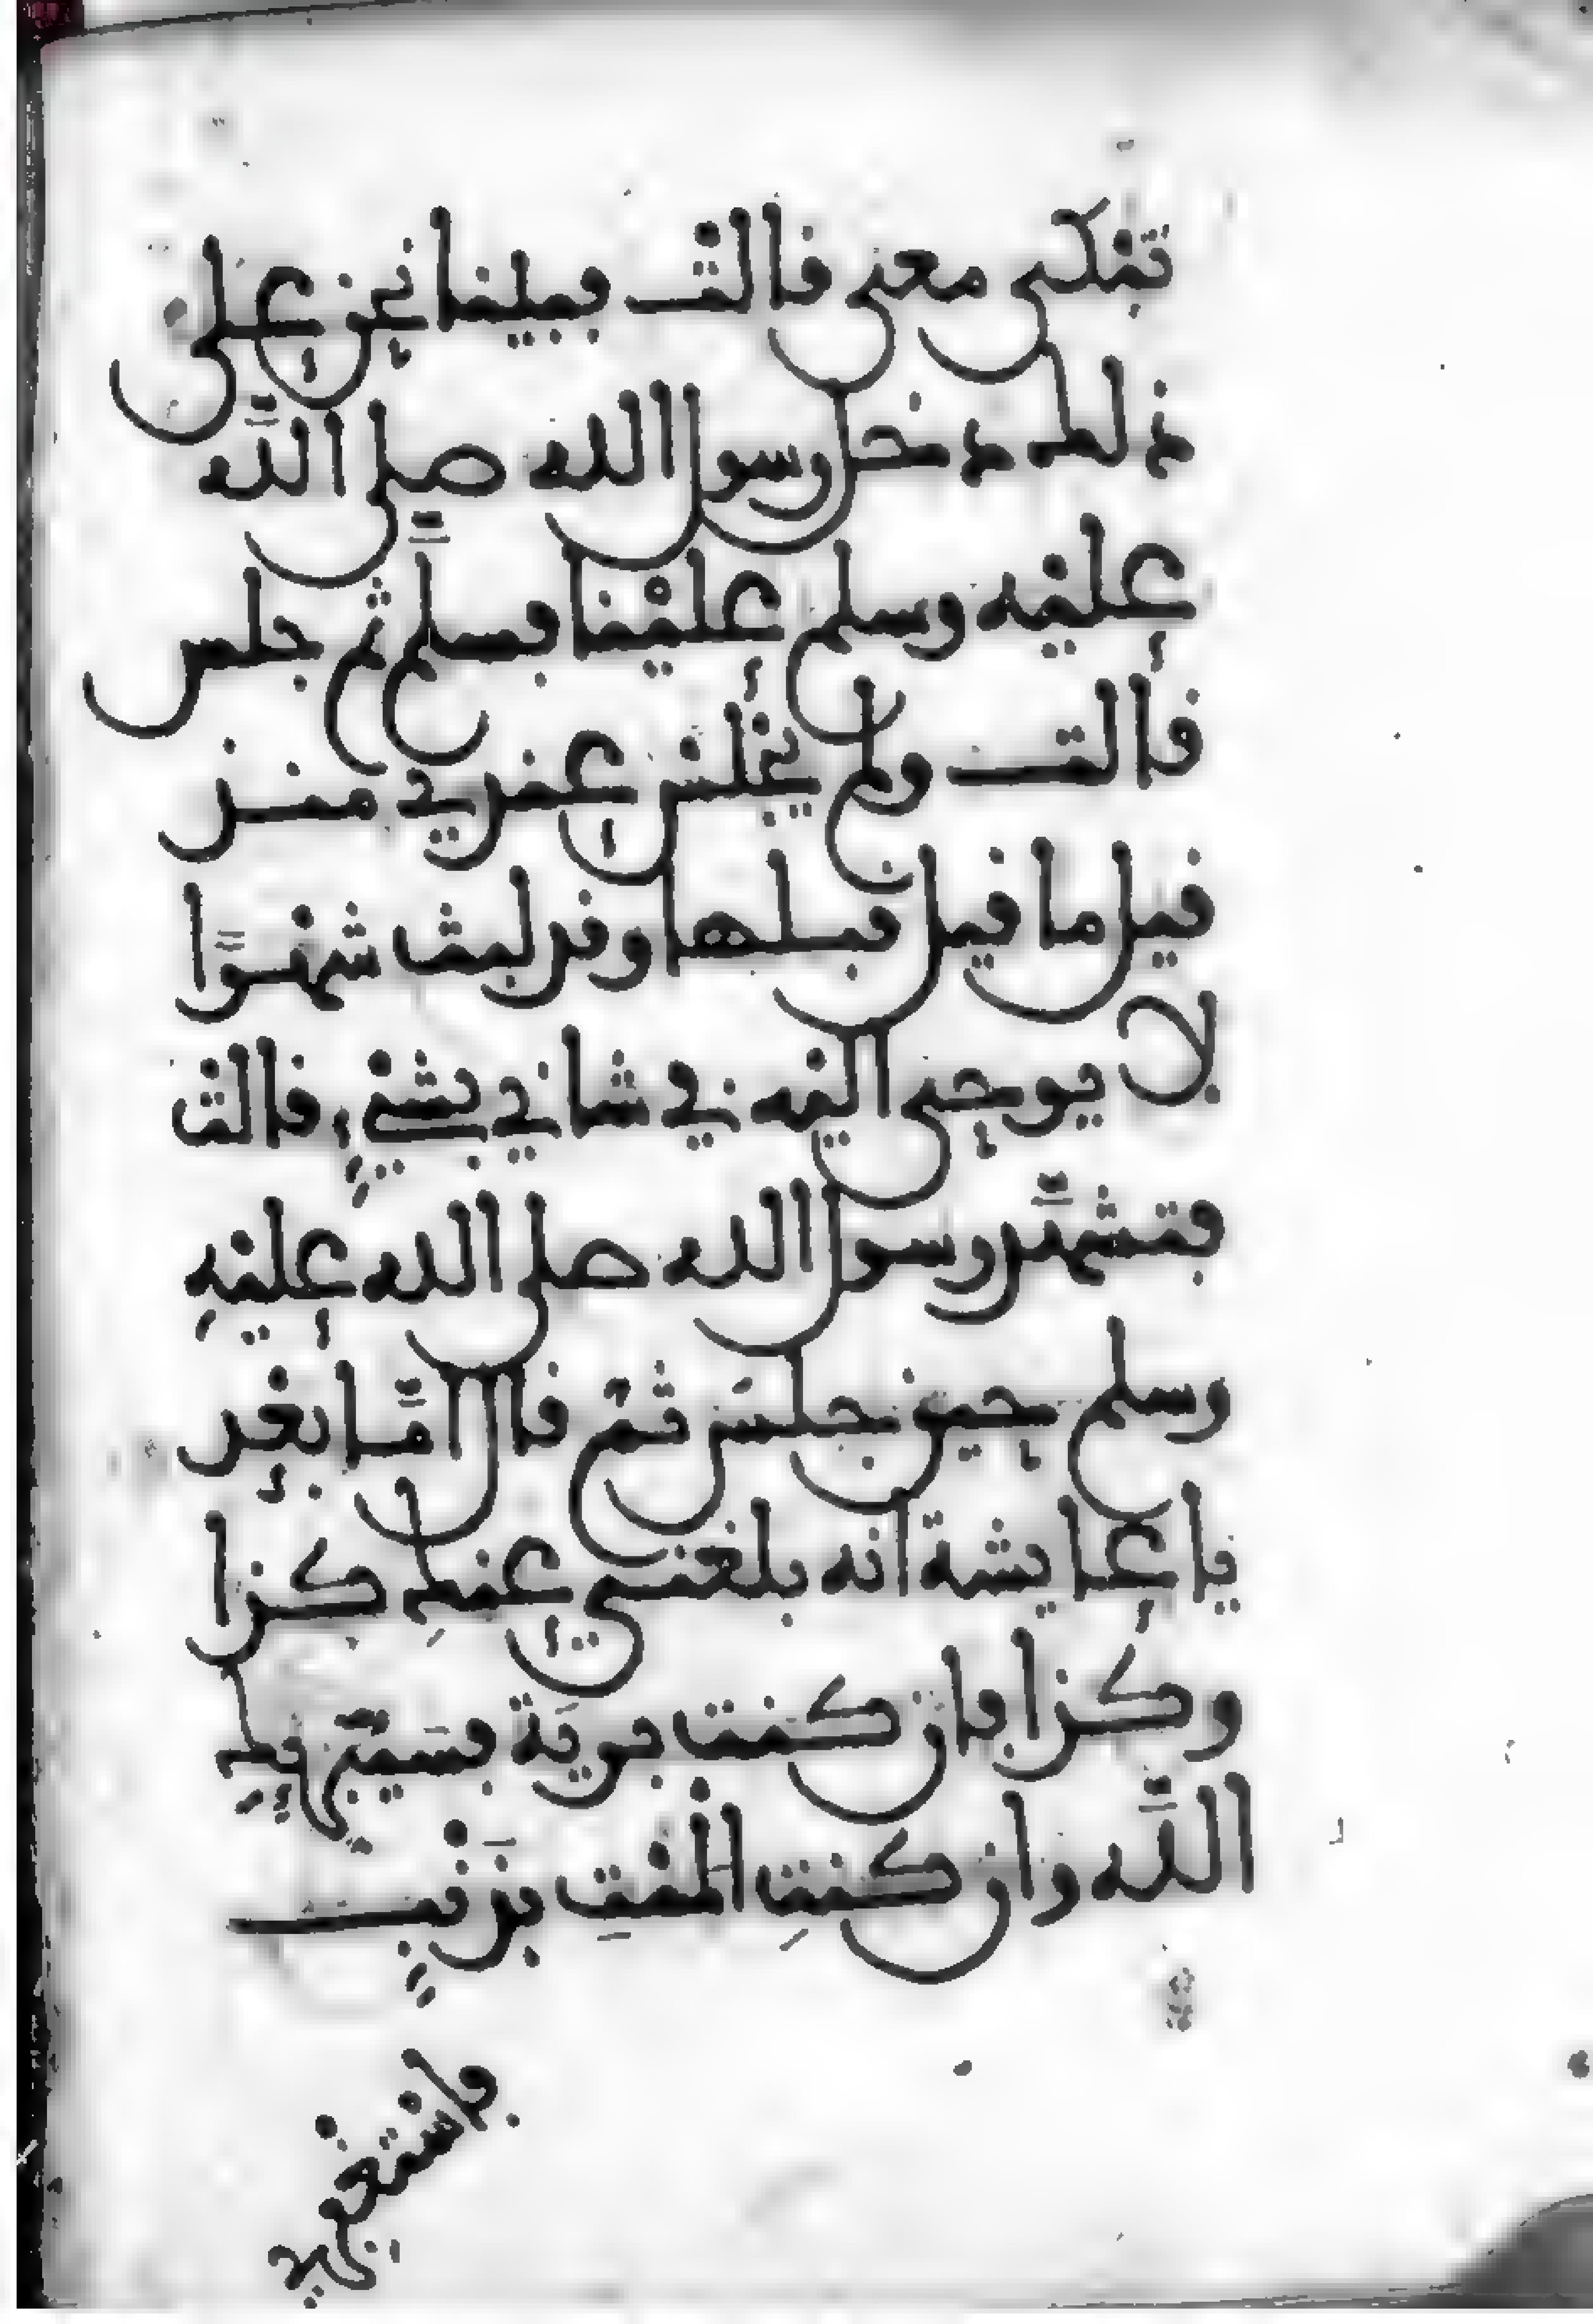 تبْكي معي قالتْ فبينا نحن على
ذلك دخل رسول الله صلى اللَّه
عليْه وسلم عليْنا فسلَّم ثم جلس
قالت ولم يجْلسْ عندي منذ
قيل ما قيل قبلها وقد لبث شهْرًا
لا يوحى اليْه في شاني بشيْءٍ قالتْ
فتشهَّد رسول الله صلى الله عليْهِ
وسلم حين جلسَ ثمّ قال امَّا بعْد
يا عايشة انه بلغني عنكِ كذا
وكذا فان كنت بريَة فسَيبَرّيكِ
اللَّه وان كنتِ الْممْتِ بذَنْبٍ
فاسْتغْفري